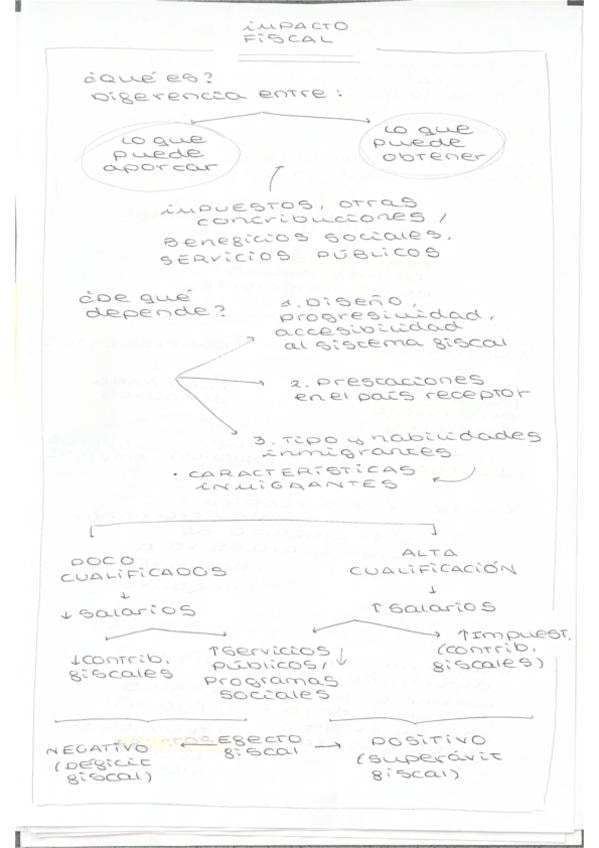 IMPACTO
FISCAL
¿Qué es?
Diferencia entre:
Lo que
puede
aportar
Lo que
puede
obtener
IMPUESTOS, otras
contribuciones /
Beneficios sociales,
SERVICIOS PÚBLICOS
¿De qué
depende?
1. Diseño,
progresividad,
accesibilidad
al sistema fiscal
2. Prestaciones
en el país receptor
3. Tipo y habilidades
inmigrantes
• CARACTERÍSTICAS
INMIGRANTES
POCO
CUALIFICADOS
↓
↓ Salarios
ALTA
CUALIFICACIÓN
↓
↑ Salarios
↓ contrib.
fiscales
↑ Servicios ↓
públicos,
programas
sociales
↑ Impuest.
(contrib.
fiscales)
NEGATIVO
(Déficit
fiscal)
← Efecto →
fiscal
POSITIVO
(superávit
fiscal)